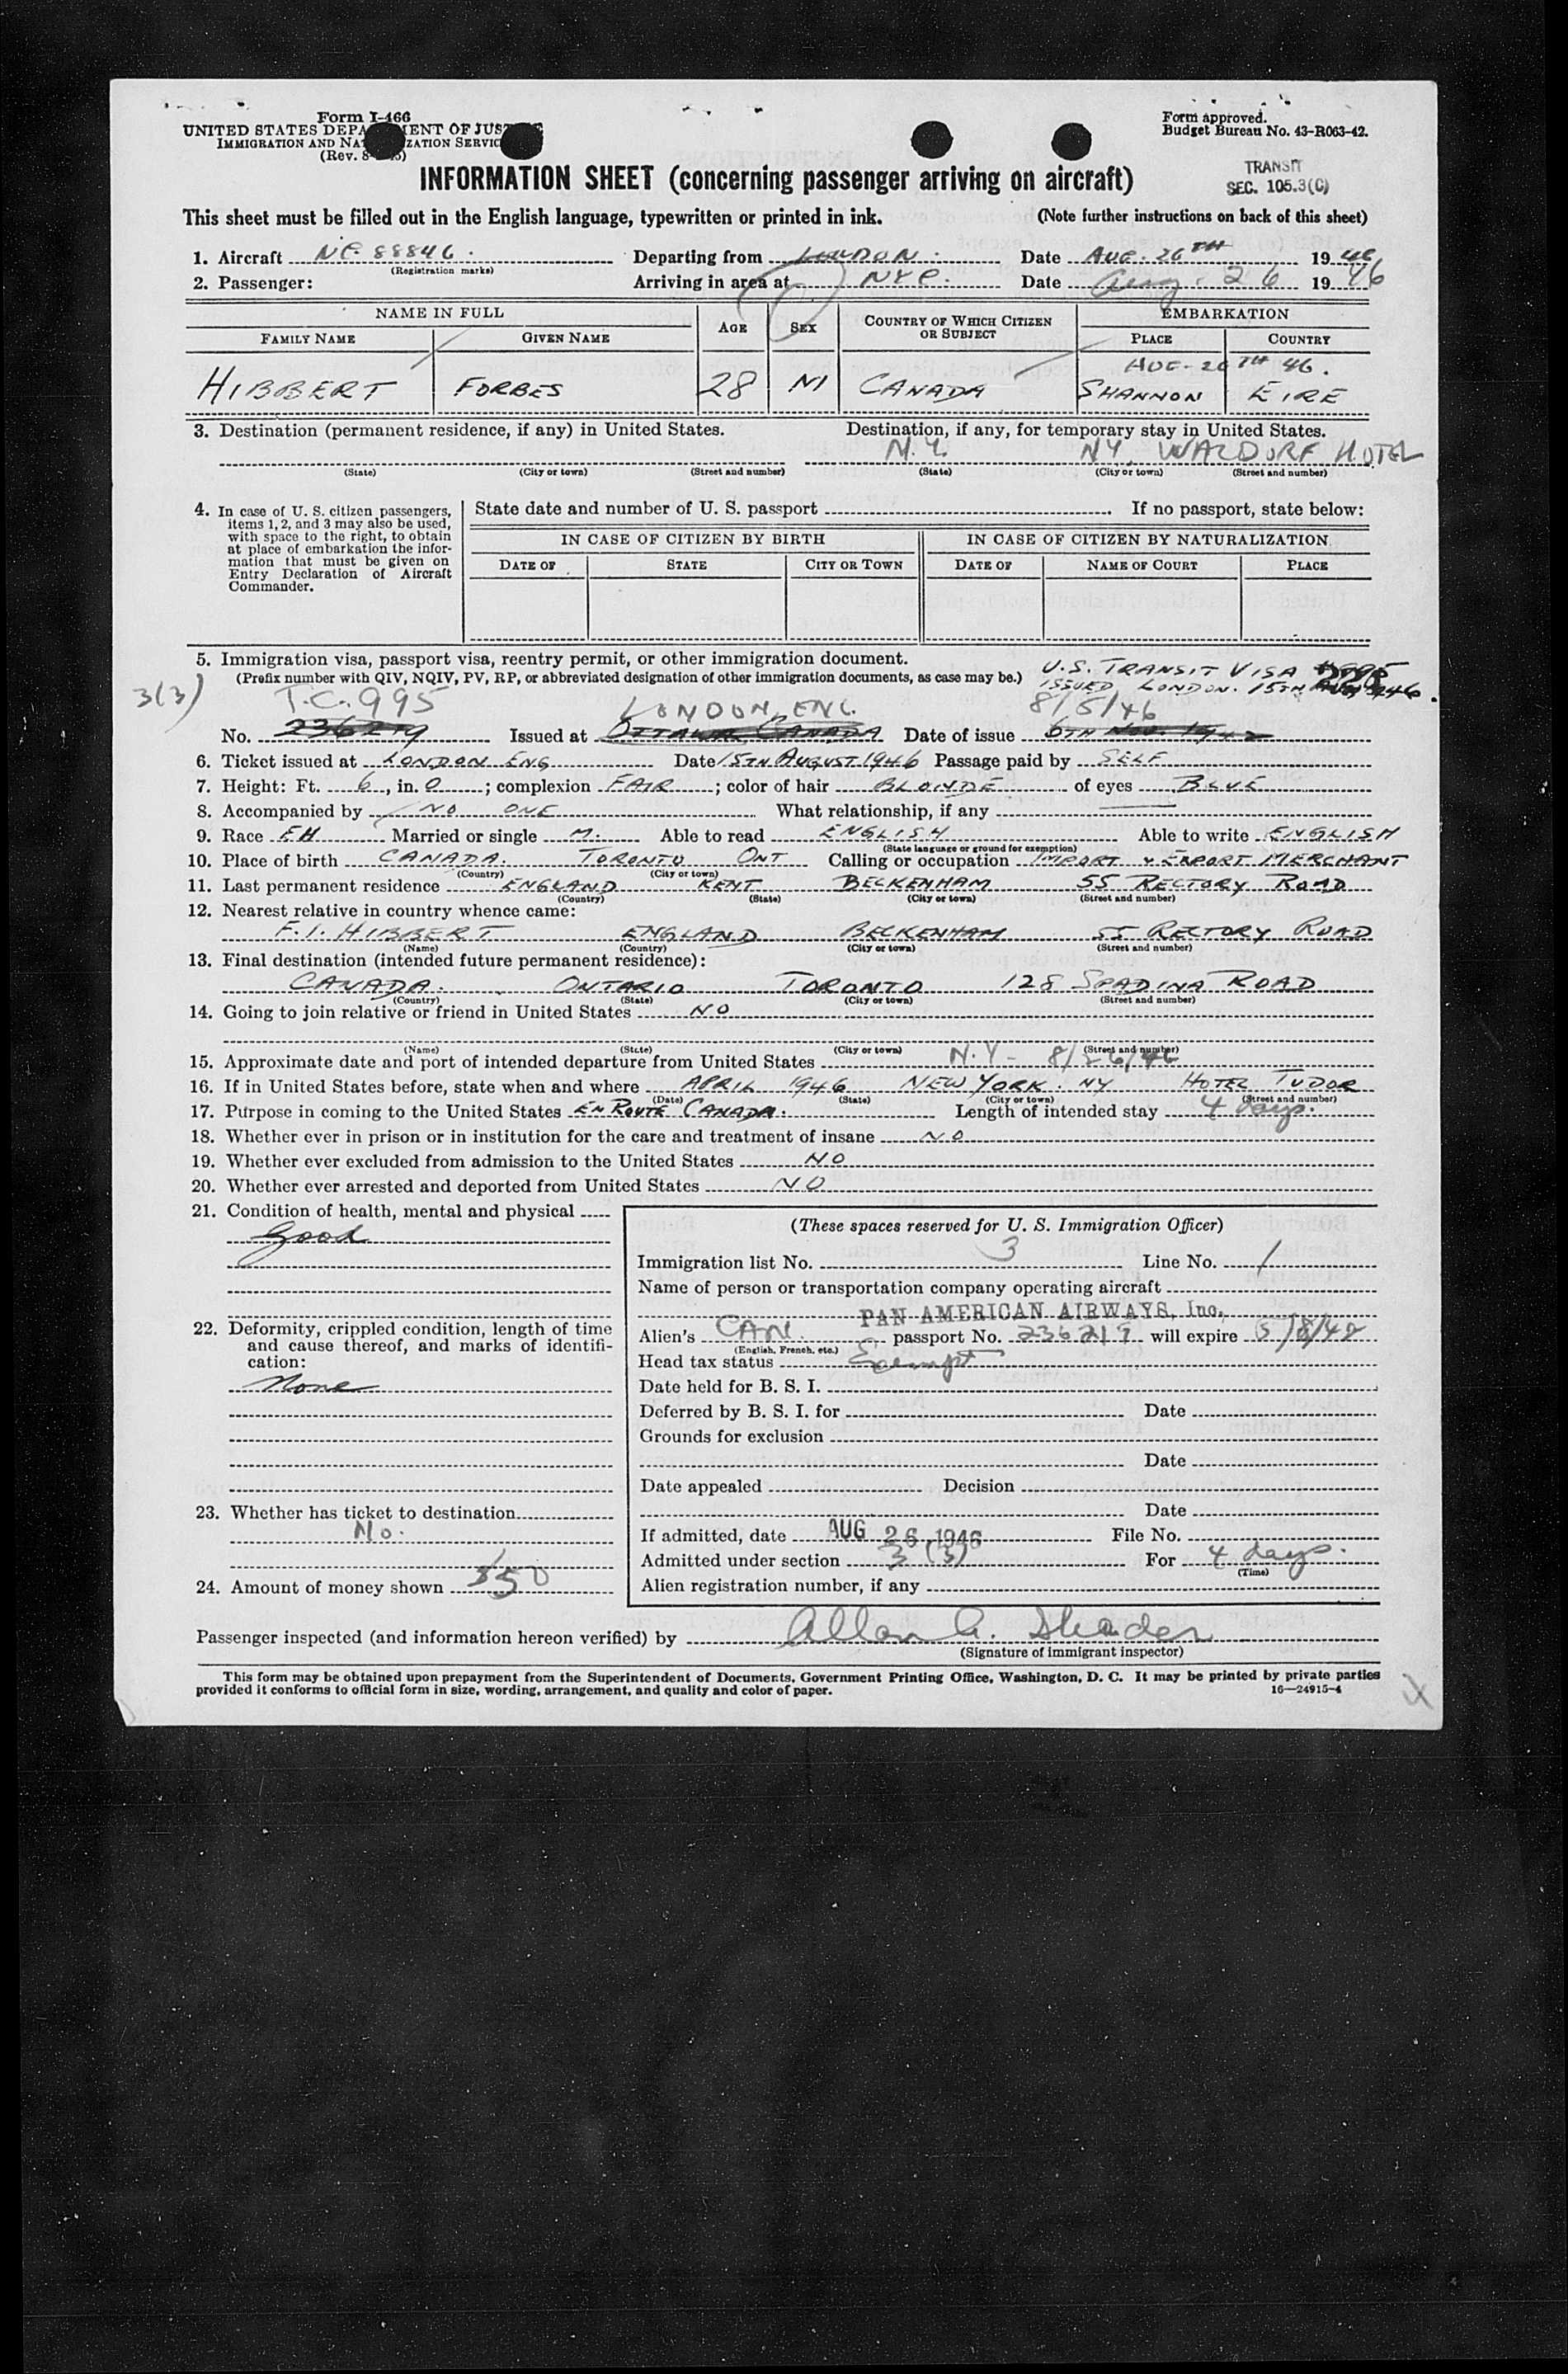 Form I-466
UNITED STATES DEPA ENT OF JUS
IMMIGRATION AND NAT ZATION SERVIC
(Rev. 8-
Form approved.
Budget Bureau No. 43-R063-42.
TRANSIT
SEC. 105.3(C)
INFORMATION SHEET (concerning passenger arriving on aircraft)
This sheet must be filled out in the English language, typewritten or printed in ink. (Note further instructions on back of this sheet)
1. Aircraft NC-88846. Departing from LONDON. Date AUG. 26TH 1946
(Registration marks)
2. Passenger: Arriving in area at NYC. Date Aug. 26 1946
NAME IN FULL AGE SEX COUNTRY OF WHICH CITIZEN OR SUBJECT EMBARKATION
FAMILY NAME GIVEN NAME PLACE COUNTRY
AUG-26TH 46.
HIBBERT FORBES 28 M CANADA SHANNON EIRE
3. Destination (permanent residence, if any) in United States. Destination, if any, for temporary stay in United States.
N.Y. NY. WALDORF HOTEL
(State) (City or town) (Street and number) (State) (City or town) (Street and number)
4. In case of U. S. citizen passengers, items 1, 2, and 3 may also be used, with space to the right, to obtain at place of embarkation the information that must be given on Entry Declaration of Aircraft Commander.
State date and number of U. S. passport If no passport, state below:
IN CASE OF CITIZEN BY BIRTH IN CASE OF CITIZEN BY NATURALIZATION
DATE OF STATE CITY OR TOWN DATE OF NAME OF COURT PLACE
5. Immigration visa, passport visa, reentry permit, or other immigration document.
(Prefix number with QIV, NQIV, PV, RP, or abbreviated designation of other immigration documents, as case may be.) U.S. TRANSIT VISA
ISSUED LONDON. 15TH AUG 1946.
3(3) T.C. 995 LONDON, ENG. 8/5/46
No. 236219 Issued at OTTAWA CANADA Date of issue 6TH NOV. 1942
6. Ticket issued at LONDON ENG Date 15TH AUGUST 1946 Passage paid by SELF
7. Height: Ft. 6, in. 0; complexion FAIR; color of hair BLONDE of eyes BLUE
8. Accompanied by NO ONE What relationship, if any
9. Race EH Married or single M. Able to read ENGLISH Able to write ENGLISH
(State language or ground for exemption)
10. Place of birth CANADA. TORONTO ONT Calling or occupation IMPORT & EXPORT MERCHANT
(Country) (City or town)
11. Last permanent residence ENGLAND KENT BECKENHAM 55 RECTORY ROAD
(Country) (State) (City or town) (Street and number)
12. Nearest relative in country whence came:
F.I. HIBBERT ENGLAND BECKENHAM 55 RECTORY ROAD
(Name) (Country) (City or town) (Street and number)
13. Final destination (intended future permanent residence):
CANADA. ONTARIO TORONTO 128 SPADINA ROAD
(Country) (State) (City or town) (Street and number)
14. Going to join relative or friend in United States NO
(Name) (State) (City or town) (Street and number)
15. Approximate date and port of intended departure from United States N.Y- 8/26/46
16. If in United States before, state when and where APRIL 1946 NEW YORK. NY HOTEL TUDOR
(Date) (State) (City or town) (Street and number)
17. Purpose in coming to the United States EN ROUTE CANADA. Length of intended stay 4 days.
18. Whether ever in prison or in institution for the care and treatment of insane NO
19. Whether ever excluded from admission to the United States NO
20. Whether ever arrested and deported from United States NO
21. Condition of health, mental and physical
Good
22. Deformity, crippled condition, length of time and cause thereof, and marks of identification:
None
23. Whether has ticket to destination
No.
24. Amount of money shown 350
(These spaces reserved for U. S. Immigration Officer)
Immigration list No. 3 Line No. 1
Name of person or transportation company operating aircraft
PAN AMERICAN AIRWAYS, Inc.
Alien's CAN. passport No. 236219 will expire 5/8/48
(English, French, etc.)
Head tax status Exempt
Date held for B. S. I.
Deferred by B. S. I. for Date
Grounds for exclusion
Date
Date appealed Decision
Date
If admitted, date AUG 26 1946 File No.
Admitted under section 3 (3) For 4 days.
(Time)
Alien registration number, if any
Passenger inspected (and information hereon verified) by Allan A. Shader
(Signature of immigrant inspector)
This form may be obtained upon prepayment from the Superintendent of Documents, Government Printing Office, Washington, D. C. It may be printed by private parties
provided it conforms to official form in size, wording, arrangement, and quality and color of paper. 16—24915-4